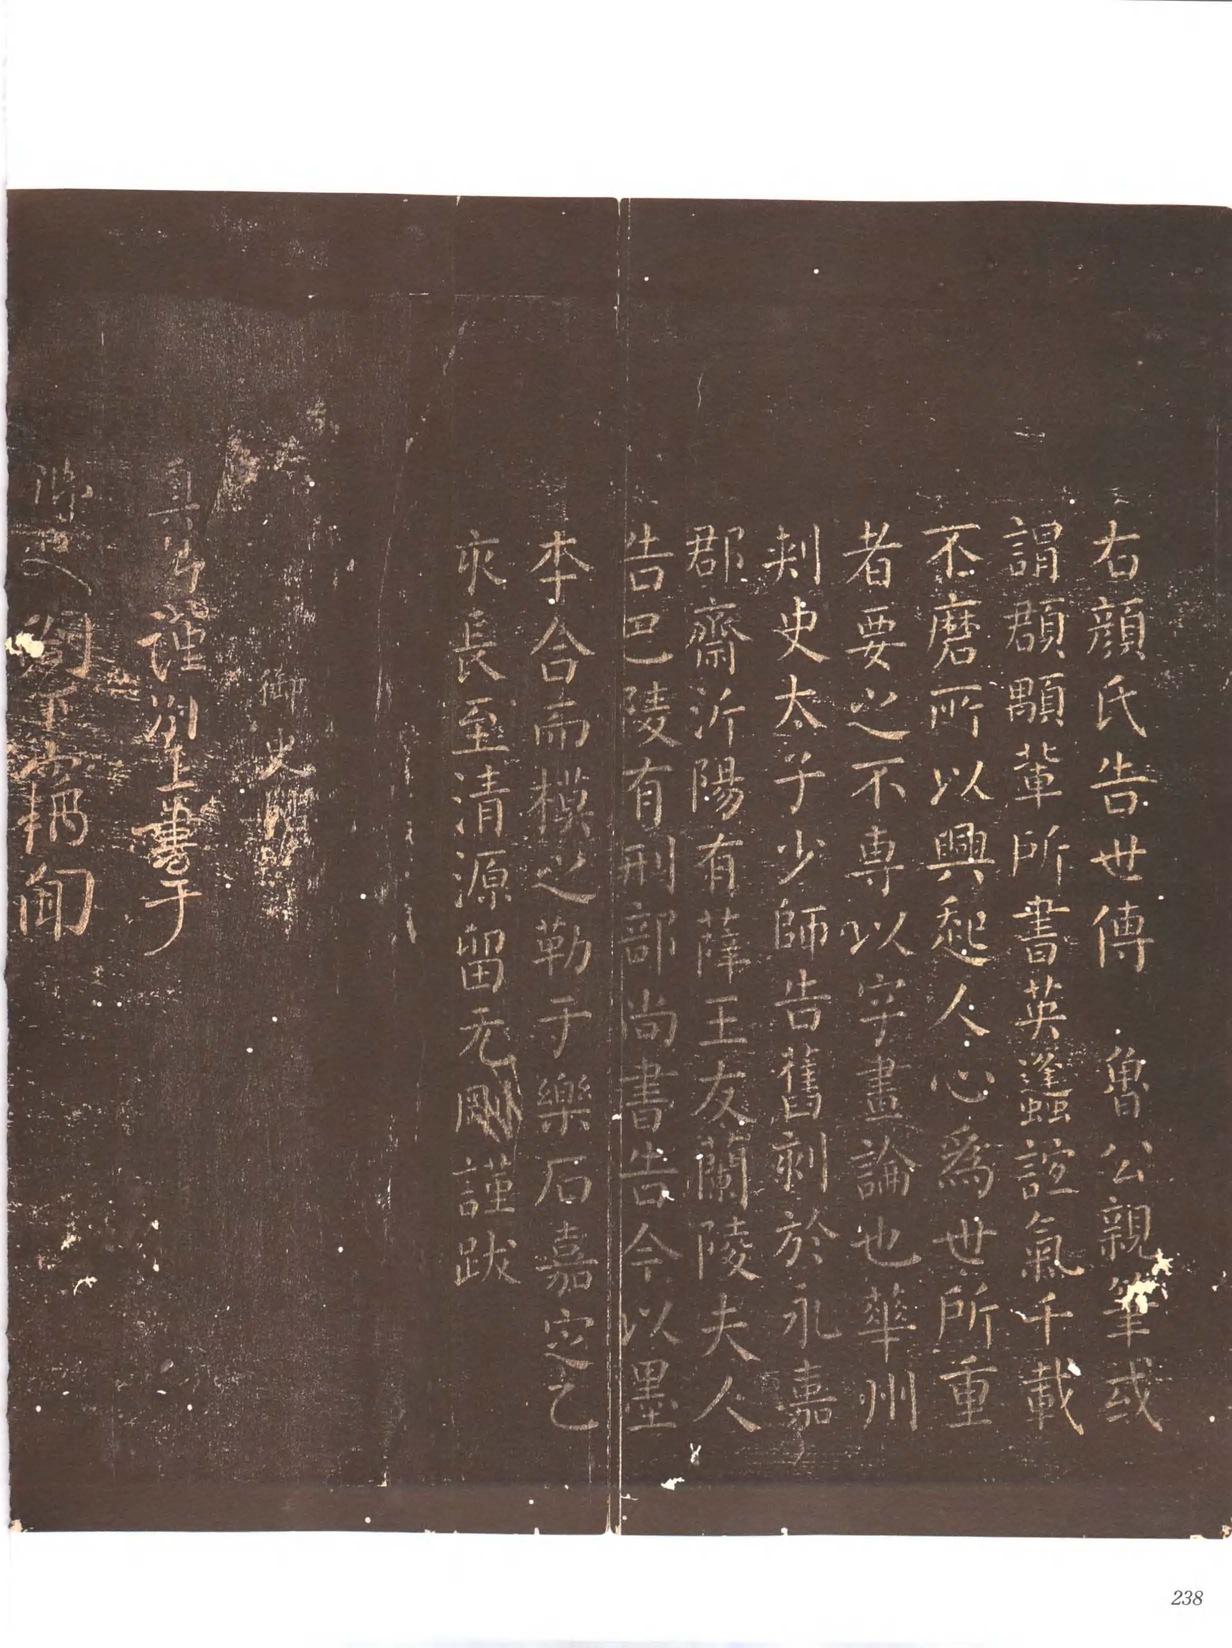 右顔氏告世傳魯公親筆或
謂頵顒輩所書英蓬蝹誼氣千載
不磨所以興起人心為世所重
者要之不專以字畫論也華州
刺史太子少師告舊刻於永嘉
郡齋沂陽有薛王友蘭陵夫人
告巴陵有刑部尚書告今以墨
本合而模之勒于樂石嘉定乙
亥長至清源留元剛謹跋
御史
謹別上書于